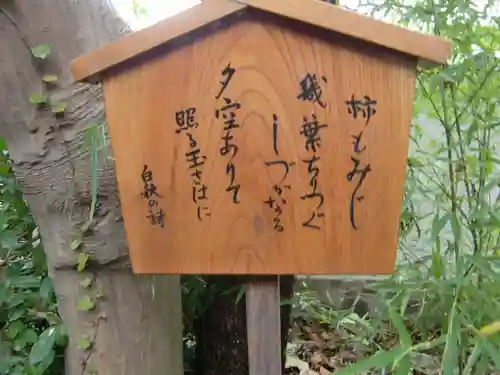 柿もみじ
残葉ちりつぐ
しづかなる
夕空ありて
照る玉さはに
白秋の詩